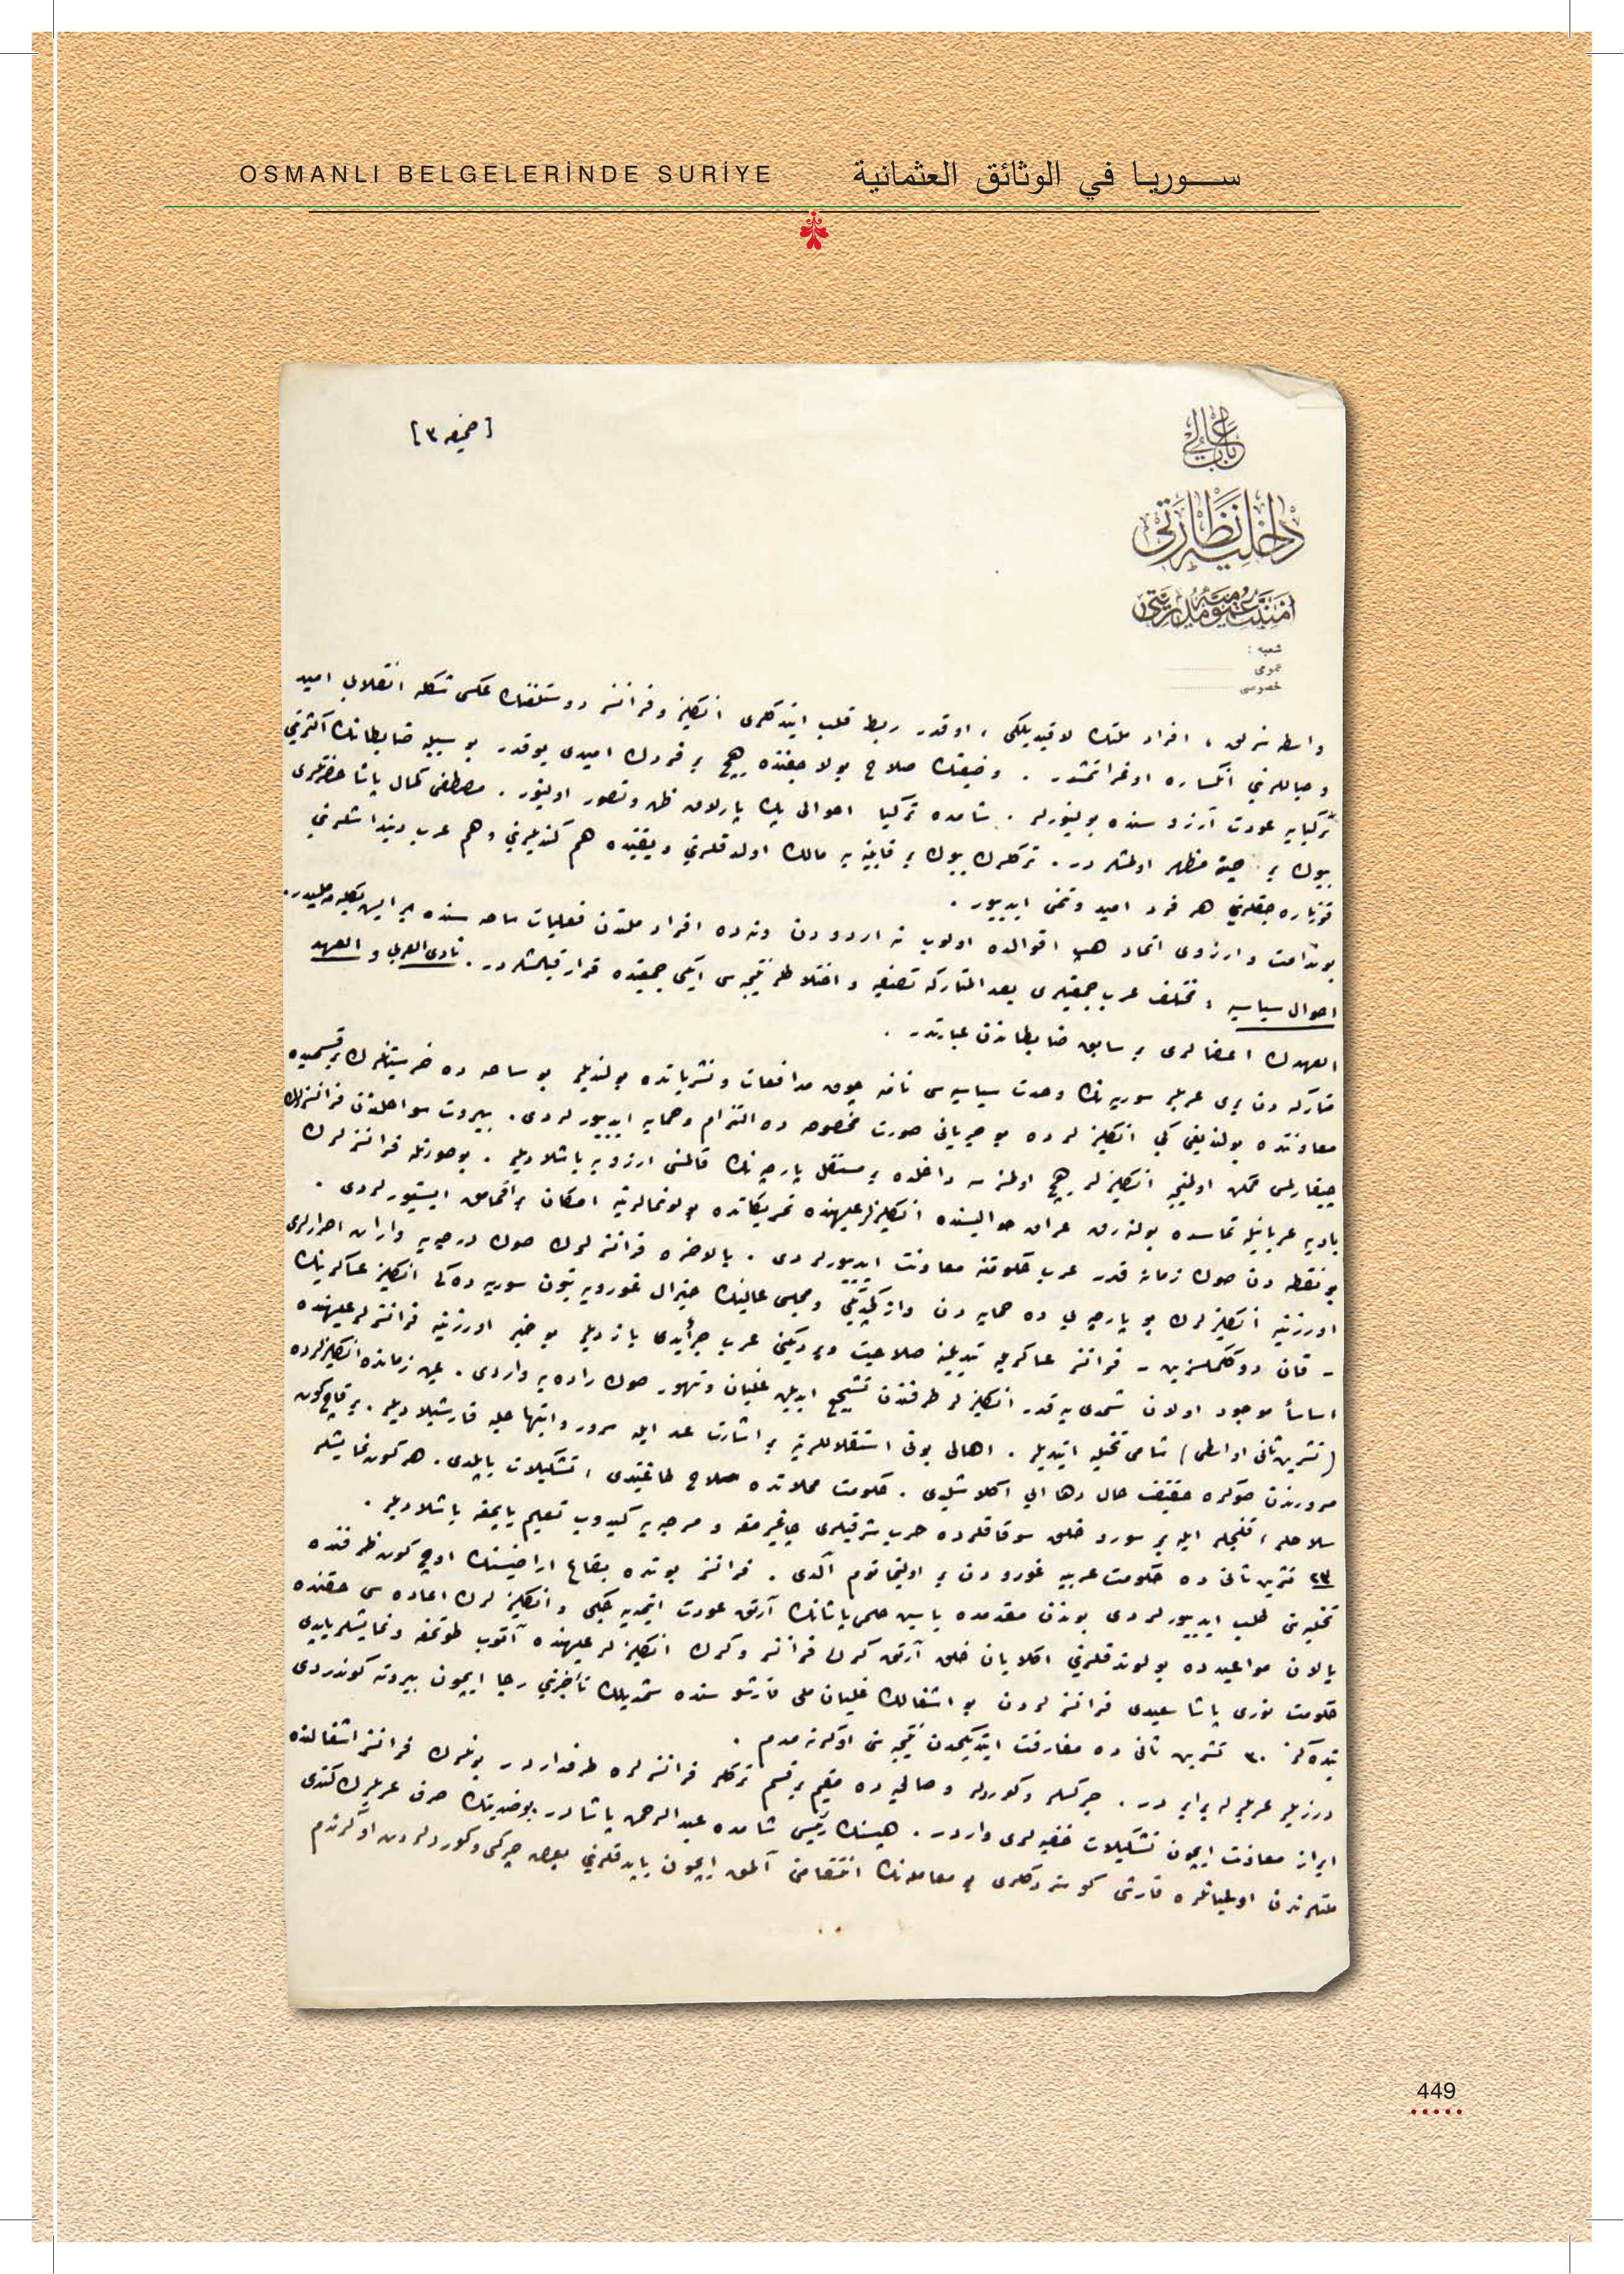 OSMANLI BELGELERİNDE SURİYE
سوريا في الوثائق العثمانية
[صحيفه ٣]
باب عالی
داخليه نظارتی
امنيت عموميه مديريتی
شعبه :
عمومی
خصوصی
واسطه سزلق ، افراد ملتك لاقيديلكی ، اوقدر ربط قلب ايتدكلری انكليز وفرانسز دوستلغنك عكسی شكله انقلابی اميد
وخياللرينی انكساره اوغراتمشدر . وضعيتك صلاح بولا جغنده هيچ بر فردك اميدی يوقدر بو سببله ضابطانك اكثريسی
تركيايه عودت آرزو سنده بولنيورلر . شامده تركيا احوالی پك پارلاق ظن وتصور اولنيور . مصطفی كمال پاشا حضرتلری
بيوك بر مظهر اولمشلردر . تركلرك بيوك بر قابليته مالك اولدقلرينی ويقينده هم كنديلرينی وهم عرب دينداشلرينی
قورتاره جقلرينی هر فرد اميد وتمنی ايدييور .
بوندامت وارزوی اتحاد هپ اقوالده اولوب نه اردودن ونه ده افراد ملتدن فعليات ساحه سنده بر ايش بكليه مليدر .
احوال سياسيه : مختلف عرب جمعيتلری بعد المتاركه تصفيه و اختلاطلر نتيجه سی ايكی جمعيتده قرار قيلمشلردر . نادی العربی و العهد
العهدك اعضالری سابق ضابطاندن عبارتدر .
متاركه دن بری عربلر سوريه نك وحدت سياسيه سی نامنه چوق مدافعات ونشرياتده بولنديلر بو ساحه ده خرستيانلرك بر قسميده
معاونتده بولنديغی كبی انكليزلرده بو جريانی صورت مخصوصه ده التزام وحمايه ايدييورلردی . بيروت سواحلندن فرانسزلرك
چيقارلمسی ممكن اولمينجه انكليزلر هيچ اولمزسه داخلده بر مستقل پارچه نك قالمسی ارزوسنه باشلاديلر . بوصورتله فرانسزلرك
باديه عربانيله تماسده بولنه رق عراق حواليسنده انكليزلر عليهنده تحريكاتده بولونمالرينه امكان براقمامق ايستيورلردی .
بو نقطه دن صوك زمانه قدر عرب حكومتنه معاونت ايدييورلردی . بالاخره فرانسزلرك صوك درجه يه واران اصرارلری
اوزرينه انكليزلرك بو پارچه يی ده حمايه دن وازكچديكی ومجلس عالينك جنرال غورويه بتون سوريه ده كی انكليز عساكرينك
- قان دوكلمكسزين - فرانسز عساكريله تبديلنه صلاحيت ويرديكنی عرب جرائدی يازديلر بو خبر اوزرينه فرانسزلر عليهنده
اساساً موجود اولان شمدی يه قدر انكليزلر طرفندن تشجيع ايديلن غليان وتهور صوك راده يه واردی . عين زمانده انكليزلرده
(تشرين ثانی اواسطی) شامی تخليه ايتديلر . اهالی بونی استقلاللرينه بر اشارت عد ايله سرور وابتهاجله قارشيلاديلر . بر قاچ كون
مروورندن صوكره حقيقت حال دها ايی اكلاشلدی . حكومت محلاتده سلاح طاغتدی ، تشكيلات ياپلدی . هر كون نمايشلر
سلاحلر ، قليجلر ايله بر سورو خلق سوقاقلرده حرب شرقيلری چاغيرمغه و مرجه يه كيدوب تعليم ياپمغه باشلاديلر .
٢٣ تشرين ثانی ده حكومت عربيه غورودن بر اولتيماتوم آلدی . فرانسز بونده بقاع اراضيسنك اوچ كون ظرفنده
تخليه سنی طلب ايدييورلردی بوندن مقدمده ياسين حلمی پاشانك آرتق عودت ايتميه جكی و انكليزلرك اعاده سی حقنده
يالان مواعيدده بولوندقلرينی اكلايان خلق آرتق كرك فرانسز وكرك انكليزلر عليهنده آتوب طوتمغه ونمايشلر ياپدی
حكومت نوری پاشا سعيدی فرانسزلردن بو اشغالك غليان ملی قارشوسنده شمديلك تأخيرينی رجا ايچون بيروته كوندردی
بنده كز ٣٠ تشرين ثانی ده مفارقت ايتديكمدن نتيجه سنی اوكرنه مدم .
درزيلر عربلرله برابردر . چركسلر وكوردلر وصالحيه ده مقيم بر قسم تركلر فرانسزلره طرفداردر بونلرك فرانسز اشغالنده
ابراز معاونت ايچون تشكيلات خفيه لری واردر . هيئتك رئيسی شامده عبد الرحمن پاشادر . بوضديتك صرف عربلرك كندی
ملتلرندن اولميانلره قارشی كوستردكلری بو معامله نك انتقامنی آلمق ايچون ياپدقلرينی بعض چركس وكوردلردن اوكرندم
449